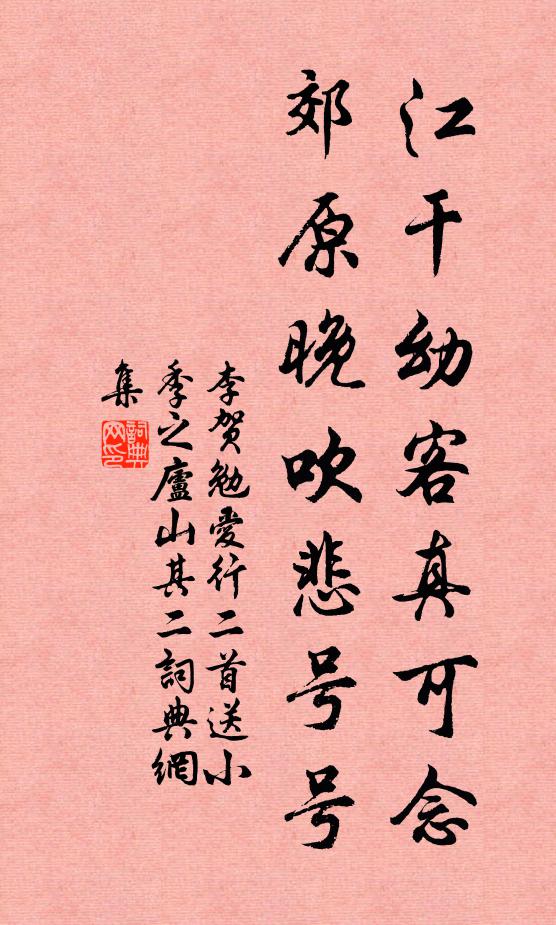 江干幼客真可念
郊原晚吹悲号号
李贺勉愛行二首送小
季之廬山其二詞典網
集
詞典
网印